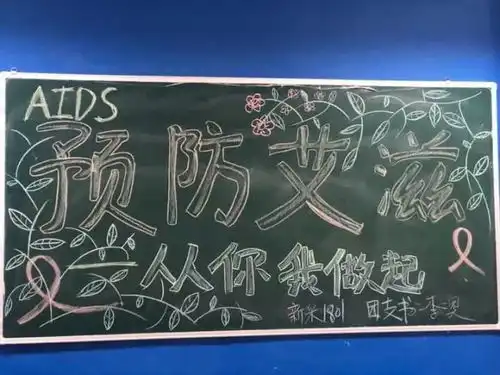 AIDS
预防艾滋
一从你我做起
新采1801 团支书:李